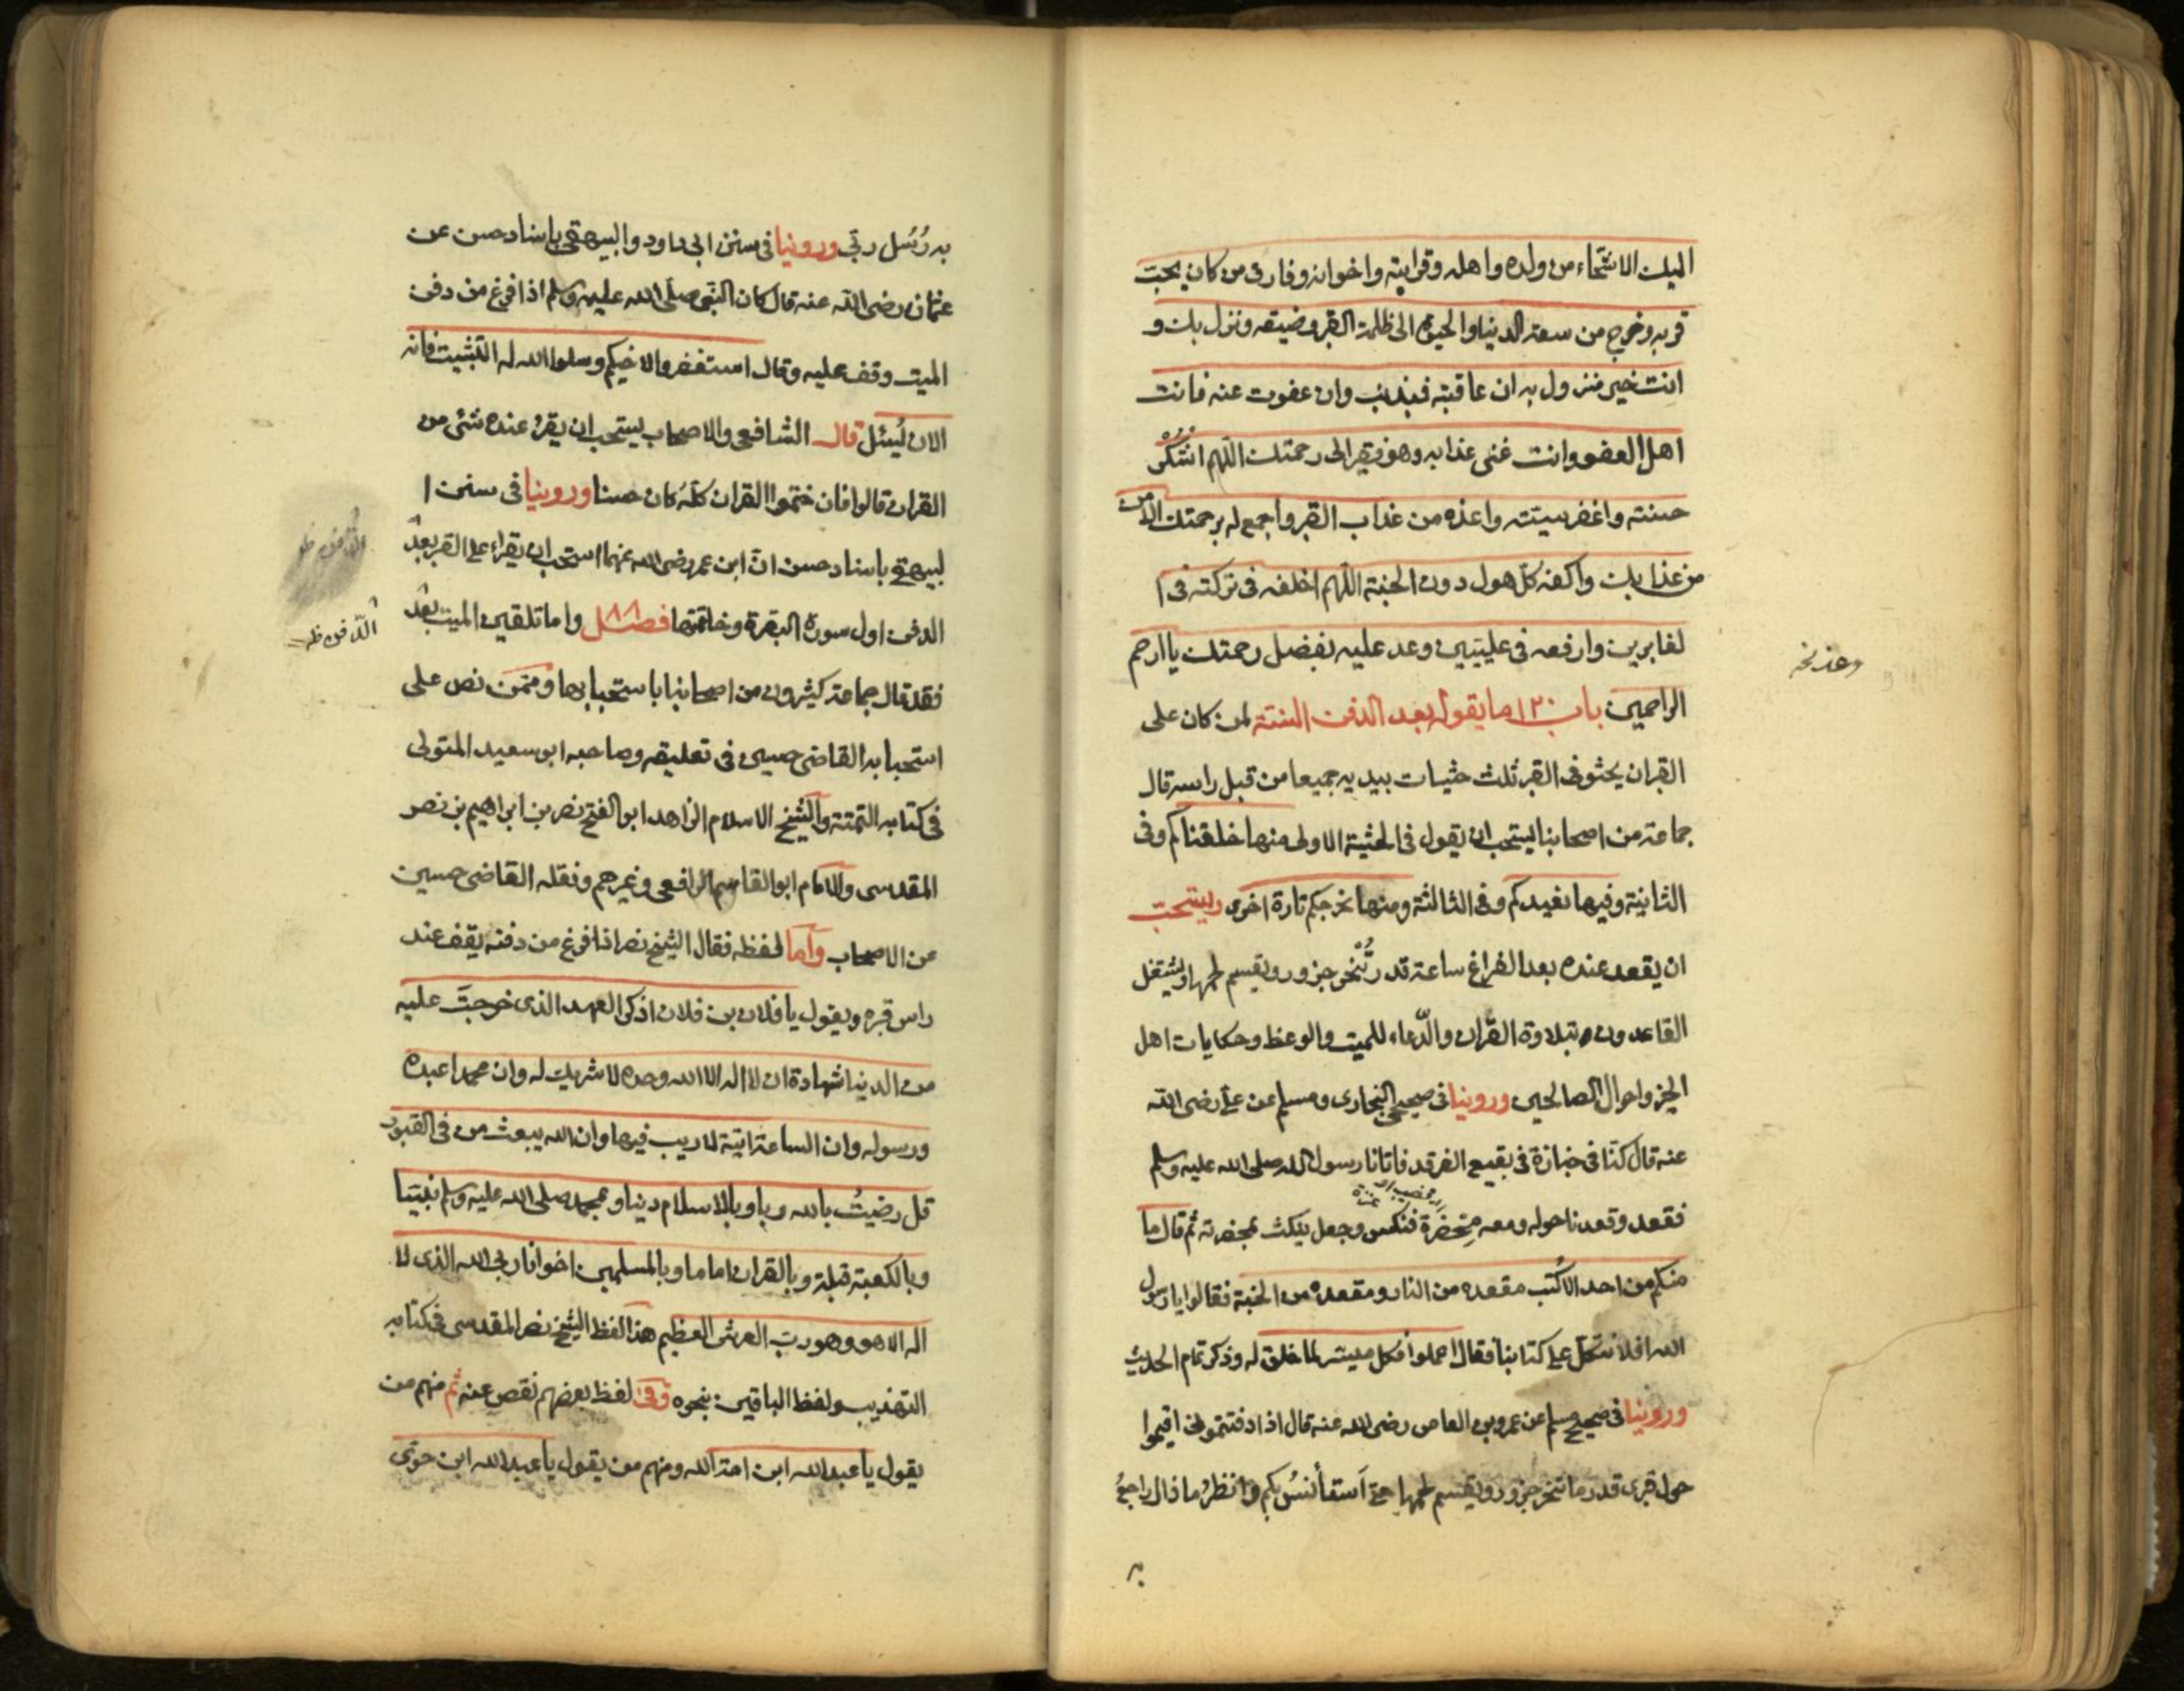 اليك الاشحاء من ولده واهله وقرابته واخوانه وفارق من كان يحب
قربه وخرج من سعة الدنيا والحيوة الى ظلمة القبر وضيقه ونزل بك و
انت خير منزول به ان عاقبته فبذنب وان عفوت عنه فانت
اهل العفو وانت غنى عذابه وهو فقير الى رحمتك اللهم اشكر
حسنته واغفر سيئته واعذه من عذاب القبر واجمع له برحمتك الامن
من عذابك واكفه كل هول دون الجنة اللهم اخلفه فى تركته فى ا
لغابرين وارفعه فى عليين وعد عليه بفضل رحمتك يا ارحم
وعد نخه
الراحمين باب ١٢٠ ما يقوله بعد الدفن السنة لمن كان على
القران يحثو فى القبر ثلث حثيات بيديه جميعا من قبل راسه قال
جماعة من اصحابنا يستحب ان يقول فى الحثية الاولى منها خلقناكم وفى
الثانية وفيها نعيدكم وفى الثالثة ومنها نخرجكم تارة اخرى ويستحب
ان يقعد عنده بعد الفراغ ساعة قدر تُنحر جزور ويقسم لحمها ويشتغل
القاعدون بتلاوة القران والدّعاء للميت والوعظ وحكايات اهل
الخير واحوال الصالحين وروينا فى صحيحى البخارى ومسلم عن على رضى الله
عنه قال كنا فى جنازة فى بقيع الغرقد فاتانا رسول الله صلى الله عليه وسلم
فقعد وقعدنا حوله ومعه مِخصَرة فنكس وجعل ينكث بمخصرته ثم قال ما
منكم من احد الا كُتب مقعده من النار ومقعده من الجنة فقالوا يا رسول
الله افلا نتكل على كتابنا فقال اعملوا فكل ميسّر لما خلق له وذكر تمام الحديث
وروينا فى صحيح مسلم عن عمرو بن العاص رضى الله عنه قال اذا دفنتمونى اقيموا
حول قبرى قدر ما تنحر جزور ويقسم لحمها حتى أستأنسُ بكم وانظر ماذا اراجعُ
به
به رُسُل ربّى وروينا فى سنن ابى داود والبيهقى باسناد حسن عن
عثمان رضى الله عنه قال كان النبى صلى الله عليه وسلم اذا فرغ من دفن
الميت وقف عليه وقال استغفروا لاخيكم وسلوا الله له التثبيت فانه
الان يُسئل قال الشافعى والاصحاب يستحب ان يقرء عنده شئ من
القران قالوا فان ختموا القران كلّه كان حسنا وروينا فى سنن ا
لبيهقى باسناد حسن انّ ابن عمر رضى الله عنهما استحب ان يقراء على القبر بعد
الدفن اول سورة البقرة وخاتمتها فصل واما تلقين الميت بعد
الدّفن ظـ
فقد قال جماعة كثيرون من اصحابنا باستحبابها وممن نص على
استحبابه القاضى حسين فى تعليقه وصاحبه ابو سعيد المتولى
فى كتابه التتمة والشيخ الاسلام الزاهد ابو الفتح نصر بن ابراهيم بن نصر
المقدسى والامام ابو القاسم الرافعى وغيرهم ونقله القاضى حسين
عن الاصحاب وأما لفظه فقال الشيخ نصر اذا فرغ من دفنه يقف عند
راس قبره ويقول يا فلان بن فلان اذكر العهد الذى خرجتَ عليه
من الدنيا شهادة ان لا اله الا الله وحده لا شريك له وان محمدا عبده
ورسوله وان الساعة اتية لا ريب فيها وان الله يبعث من فى القبور
قل رضيتُ بالله ربا وبالاسلام دينا وبمحمد صلى الله عليه وسلم نبيّا
وبالكعبة قبلة وبالقران اماما وبالمسلمين اخوانا ربى الله الذى لا
اله الا هو وهو رب العرش العظيم هذا لفظ الشيخ نصر المقدسى فى كتابه
التهذيب ولفظ الباقين بنحوه وفى لفظ بعضهم نقص عنه ثم منهم من
يقول يا عبد الله ابن امة الله ومنهم من يقول يا عبد الله ابن حوّى